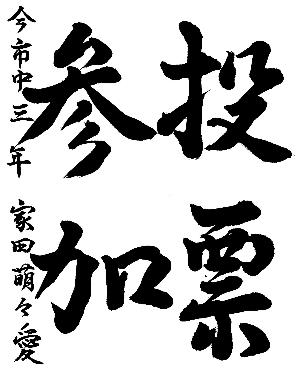 投票
参加
今市中三年 家田萌々愛